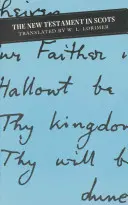 THE NEW TESTAMENT IN SCOTS
TRANSLATED BY W. L. LORIMER
ur Faither i
Hallowt be
Thy kingdom
Thy will b
dune